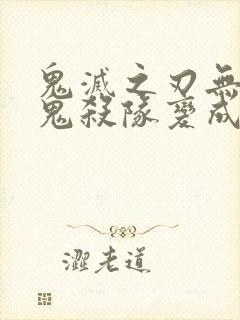 鬼滅之刃無
鬼殺隊變成
澀老道